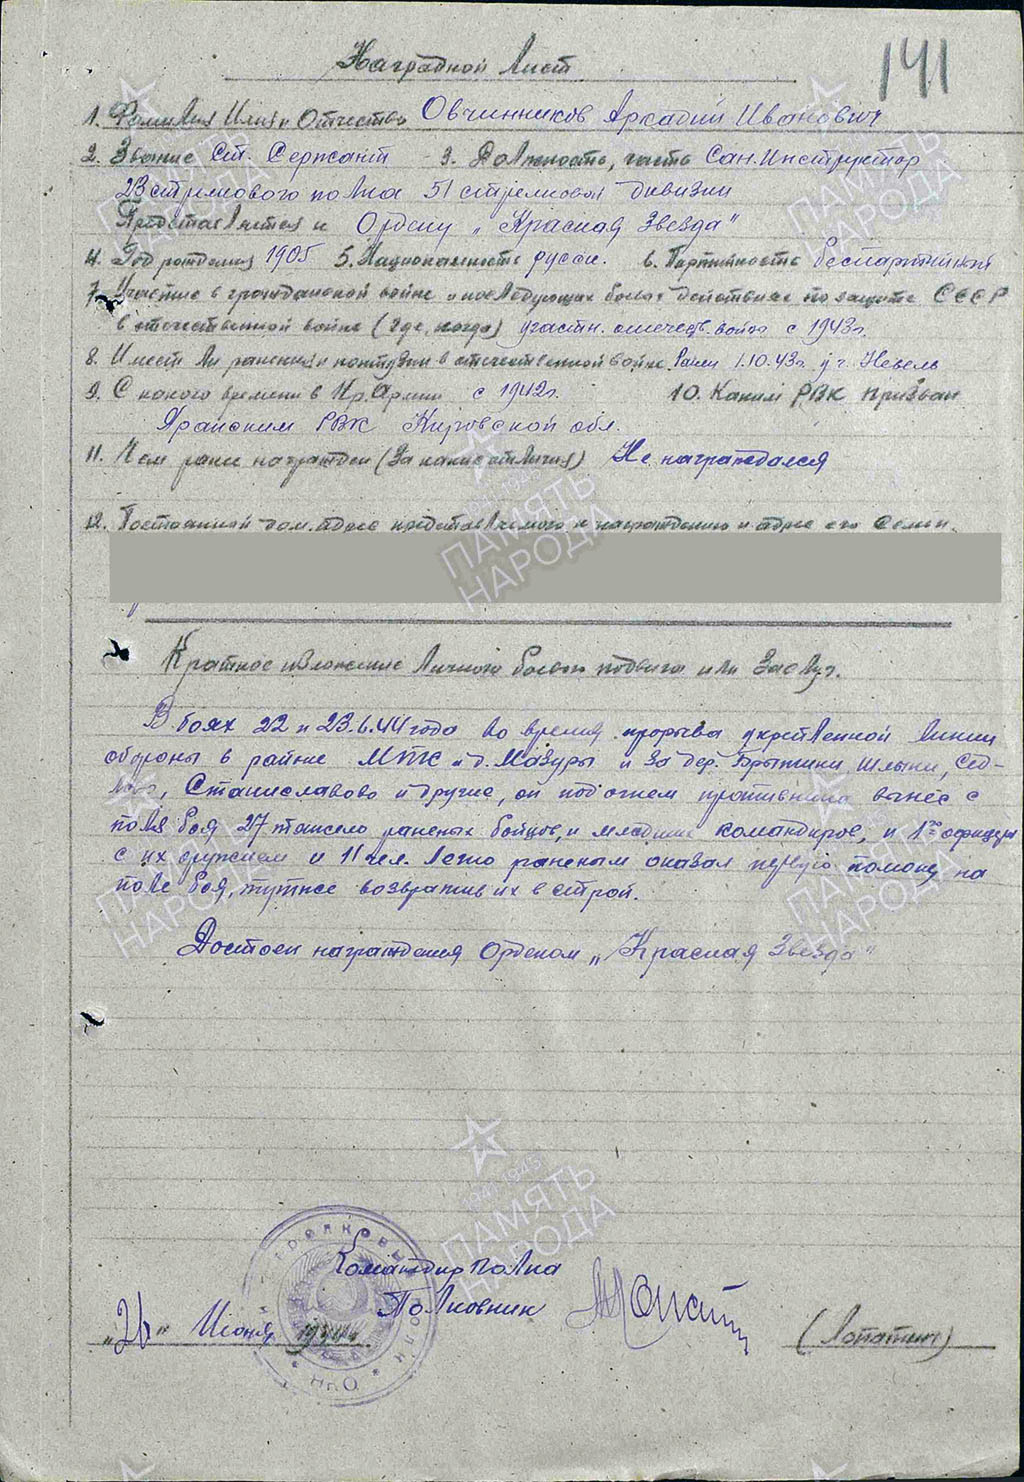 141
Наградной Лист
1. Фамилия Имя и Отчество Овчинников Аркадий Иванович
2. Звание Ст. Сержант 3. Должность, часть Сан. Инструктор
23 стрелкового полка 51 стрелковой дивизии
Представляется к Ордену „Красная Звезда"
4. Год рождения 1905 5. Национальность русск. 6. Партийность беспартийный
7. Участие в гражданской войне и последующих боевых действиях по защите СССР
в отечественной войне (где, когда) участн. отечеств. войны с 1943г.
8. Имеет ли ранения и контузии в отечественной войне. Ранен 1.10.43г. у г. Невель
9. С какого времени в Кр. Армии с 1942г. 10. Каким РВК призван
Яранским РВК Кировской обл.
11. Чем ранее награжден (За какие отличия) Не награждался
12. Постоянной дом. адрес представляемого к награждению и адрес его Семьи.
Краткое изложение Личного боевого подвига или Заслуг.
В боях 22 и 23.6.44 года во время прорыва укрепленной линии
обороны в районе МТК и д. Мазуры и за дер. Брыткии Шлыки, Сед-
Станиславово и другие, он под огнем противника вынес с
поля боя 27 тяжело раненых бойцов, и младших командиров, и 1го офицера
с их оружием и 11 чел. легко раненым оказал первую помощь на
поле боя, тут же возвратив их в строй.
Достоен награждения Орденом „Красная Звезда"
Командир полка
Полковник
„26" Июня 1944г. (Лопатин)
ПАМЯТЬ НАРОДА
1941-1945